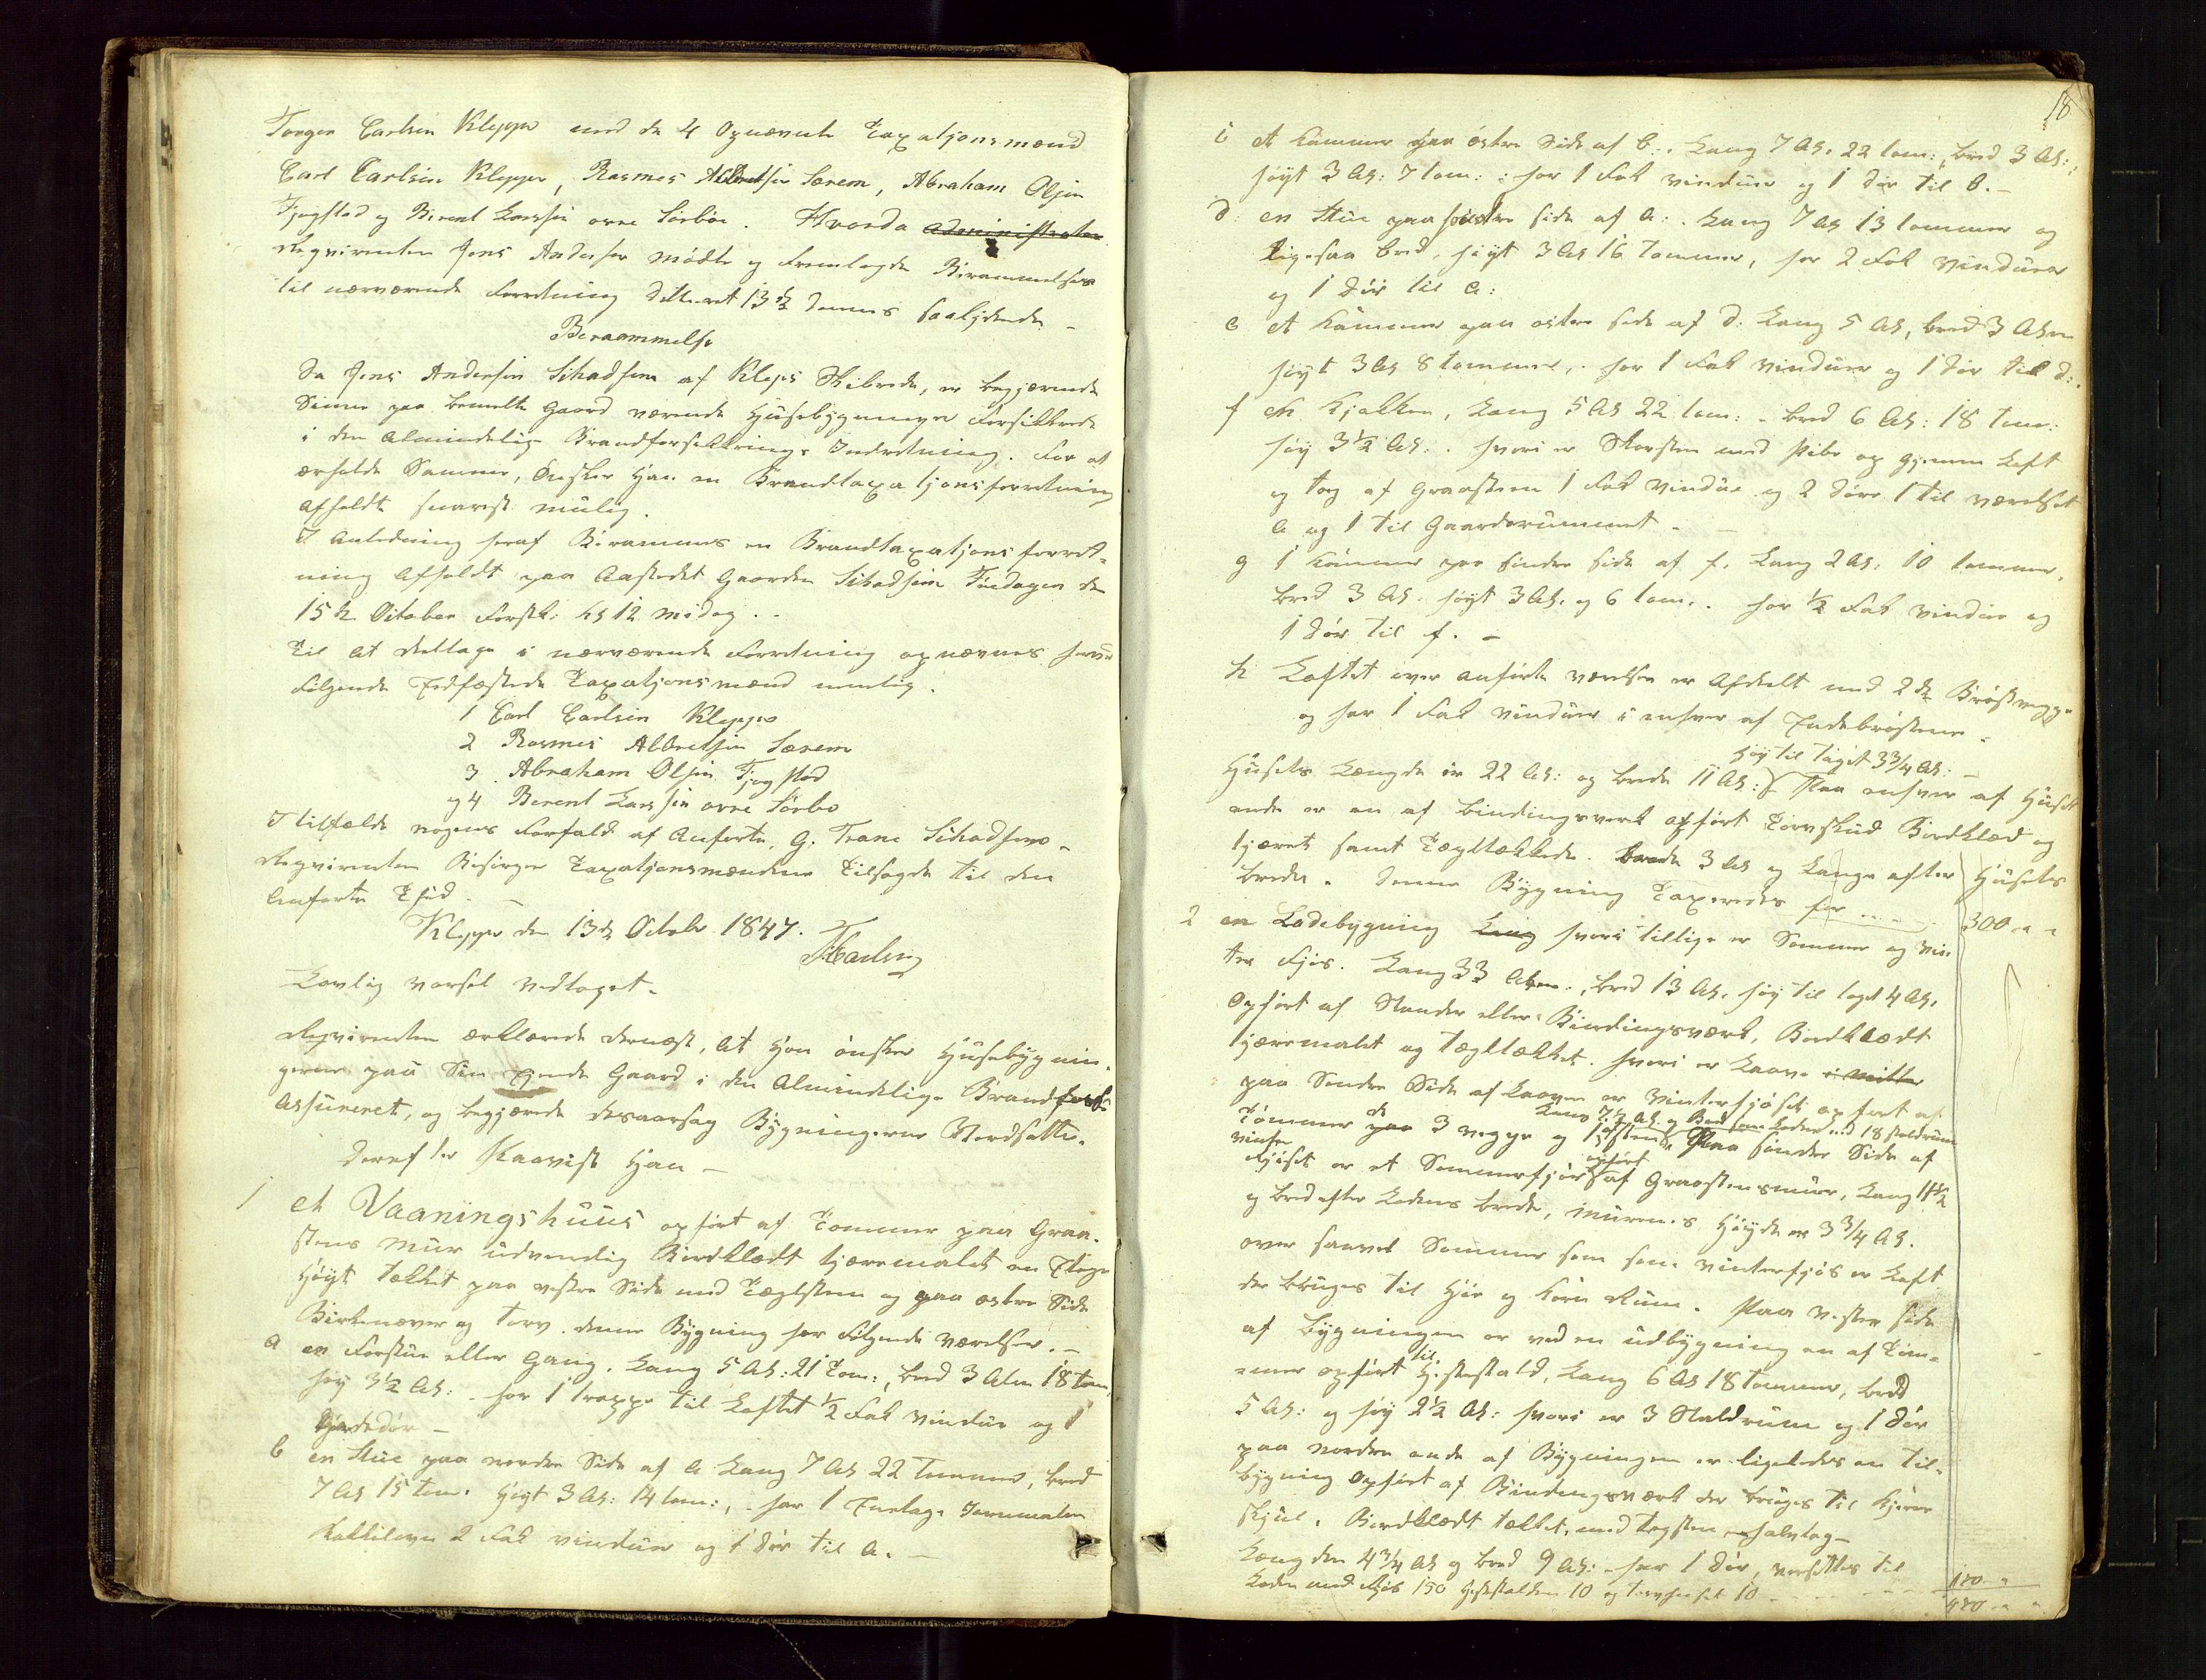 Torger Carlsen Kleppe med de 4 Opnævnte Taxatjonsmænd
Carl Carlsen Kleppe, Rasmus Albretsen Særem, Abraham Olsen
Tjogstad og Berent Larssen ovre Sörböe. Hvorda administrater
Reqvirenten Jens Andersen mödte og fremlagde Berammelses
til nærværende Forretning dateret 13de Dennes saalydende –
Beraammelse
Da Jens Andersen Sihadsem af Kleps Skibrede, er begjærende
Sinne paa bemelte Gaard værende Huusebygninger Forsikkrede
i den Almindelige Brandforsikkrings Indretning. For at
erholde Samme, Önsker Han en Brandtaxatjonsforretning
Afholdt snarest mulig.
I Anledning heraf Berammes en Brandtaxatjons forret-
ning Afholdt paa Aastedet Gaarden Sihadsem Fredagen de
15de October Förstk: Kl 12 Midag. -
Til At deltage i nærværende Forretning opnævnes herved
Fölgende Edfæstede Taxatjonsmænd nemlig.
1 Carl Carlsen Kleppe
2 Rasmus Albretsen Særem
3. Abraham Olsen Tjogstad
og 4 Berent Larssen ovre Sörbo
I tilfælde nogens Forfald af Anförte, G. Trane Sihadsem –
Reqvirenten Besörger Taxatjonsmændene Tilsagde til den
Anförte Tid. –
Kleppe den 13de Octobr 1847.
TCarlsen
Lovlig varsel vedtaget.
Reqvirenten erklærede dernæst, at Han önsker Huusebygnin-
gerne paa Sin Ejende Gaard i den Almindelige Brand
Assureret, og begjærede desaarsag Bygningerne Værdsatte.
Derefter Paaviste Han –
1 et Vaaningshuus opfört af Tömmer paa Graa-
stens Muur udvendig Bordklædt tjæremalet en Etage
Höyt tækket paa vestre Side med Tæglsten og paa östre Side
Birkenæver og Torv. denne Bygning har Fölgende værelser. –
a en Forstue eller Gang. Lang 5 Al: 21 Tom:, bred 3 Alen 18 tom,
höy 3½ Al: . har 1 trappe til Loftet ½ Fak vindue og 1
dör –
b en Stue paa nordre Side af a Lang 7 Al 22 Tommer, bred
7 Al 15 tom. Höyt 3 Al: 14 tom:, . har 1 Enetages Jernmalm
Kakkelovn 2 Fak vinduer og 1 dör til a. –
18
c et Kammer paa östre Side af b:. Lang 7 Al. 22 tom:, bred 3 Al:,
höyt 3 Al: 7 tom: : har 1 Fak vinduer og 1 dör til b. –
d: en Stue paa söndre side af a: . Lang 7 Al 13 tommer og
ligesaa bred, höyt 3 Al 16 Tommer, har 2 Fak vinduer
og 1 dör til a:
e et Kammer paa östre side af d: Lang 5 Al, bred 3 Alen
höyt 3 Al 8 tommer, . har 1 Fak vinduer og 1 dör til d:.
f et Kjökken, Lang 5 Al 22 tom: . bred 6 Al: 18 tom:
höy 3½ Al: . hvori er Skorsten med Pibe op gjennem Loft
og tag af Graasteen 1 Fak vindue og 2 döre 1 til værelset
a og 1 til Gaardsrummet. –
g 1 Kammer paa söndre side af f. Lang 2 Al, 10 tommer,
bred 3 Al. höyt 3 Al. og 6 tom. . har ½ Fak vindue og
1 dör til f. –
h Loftet over anförte værelser er Afdeelt med 2de Bröstvegge
og har 1 Fak vinduer i enhver af Endebröstene. –
höy til taget 3¾ Al: –
Husets Længde er 22 Al: og brede 11 Al: Paa enhver af Husets
ende er en af bindingsverk opfört Torvskud Bordklæd og
tjæret samt Tægltækkede. brede 3 Al og Lange efter Husets
brede. denne Bygning Taxeredes for .... 300 " "
2 en Ladebygning Lang hvori tillige er Sommer og vin
ter Fjös. Lang 33 Alen., bred 13 Al. höy til taget 4 Al,
Opfört af Stender eller Bindingsværk, Bordklædt
tjæremalet og tægltækket. hvori er Laave i Mitten
paa Söndre Side af Laaven er vinterfjöset opfört af
Lang 7½ Al. og Bred som Laden med 18 staldrum
Tömmer paa de 3 vegge og 1 af Steen Paa söndre Side af
vinter
Fjöset er et Sommerfjös opfört af Graastensmuur, Lang 11½
og bred efter Ladens brede, Murenes Höyde er 3¾ Al.
over saavel Sommer som som vinterfjös er Loft
der bruges til Höe og Korn Rum. Paa vestre side
af bygningen er ved en udbygning en af Töm-
mer opfört til Hestestald, Lang 6 Al 18 tommer, bred
5 Al: og höy 2½ Al: hvori er 3 Staldrum og 1 dör
paa nordre ende af Bygningen er ligeledes en til-
bygning Opfört af Bindingsværk der bruges til Kjerre
skjul. Bordklædt tækket, med tegsten halvtag –
Længden 4¾ Al og bred 9 Al: . har 1 dör, værsættes til
Laden med Fjös 150 Hestestalden 10 og torvhuset 10 .... 170 "
470 " "